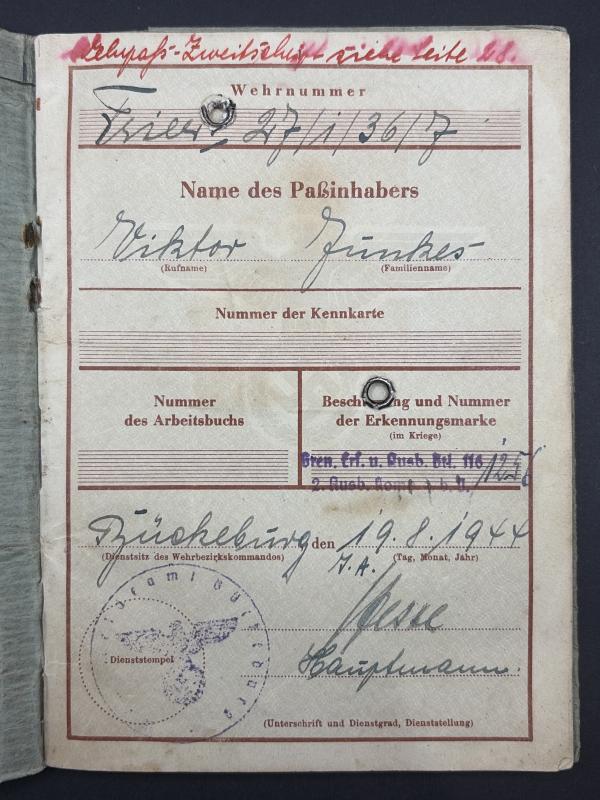 Wehrpaß-Zweitschrift siehe Seite 48.
Wehrnummer
Trier 27/1/36/7
Name des Paßinhabers
Viktor Junkes
(Rufname) (Familienname)
Nummer der Kennkarte
Nummer
des Arbeitsbuchs
Beschriftung und Nummer
der Erkennungsmarke
(im Kriege)
Gren. Ers. u. Ausb. Btl. 116
2. Ausb. Komp.
Bückeburg den 19.8.1944
(Dienstsitz des Wehrbezirkskommandos) (Tag, Monat, Jahr)
I.A.
Hesse
Dienststempel
Hauptmann.
(Unterschrift und Dienstgrad, Dienststellung)